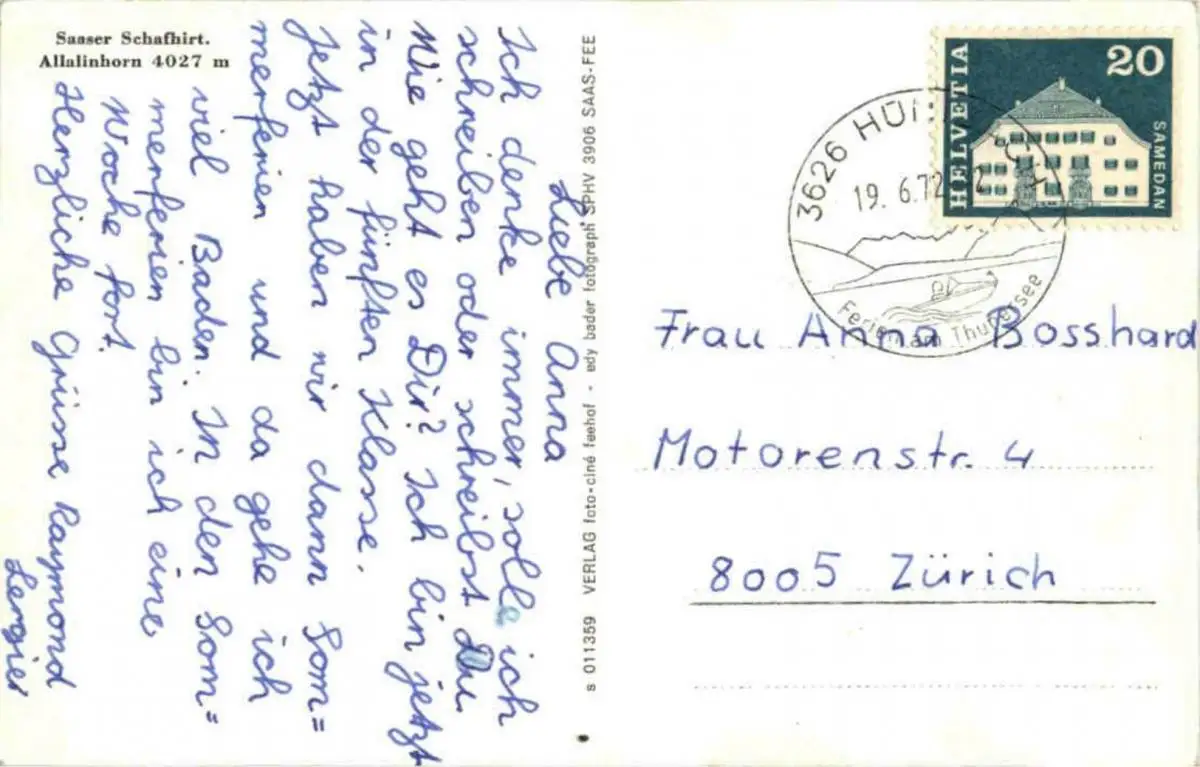 Saaser Schafhirt.
Allalinhorn 4027 m
Liebe Anna
Ich denke immer, soll ich
schreiben oder schreibst Du.
Wie geht es Dir? Ich bin jetzt
in der fünften Klasse.
Jetzt haben wir dann Som=
merferien und da gehe ich
viel Baden. In den Som=
merferien bin ich eine
Woche fort.
Herzliche Grüsse Raymond
s 011359 VERLAG foto-ciné feehof - edy bader fotograph SPHV 3906 SAAS-FEE
HELVETIA
20
SAMEDAN
3626
19. 6.72
Ferien am Thunersee
Frau Anna Bosshard
Motorenstr. 4
8005 Zürich